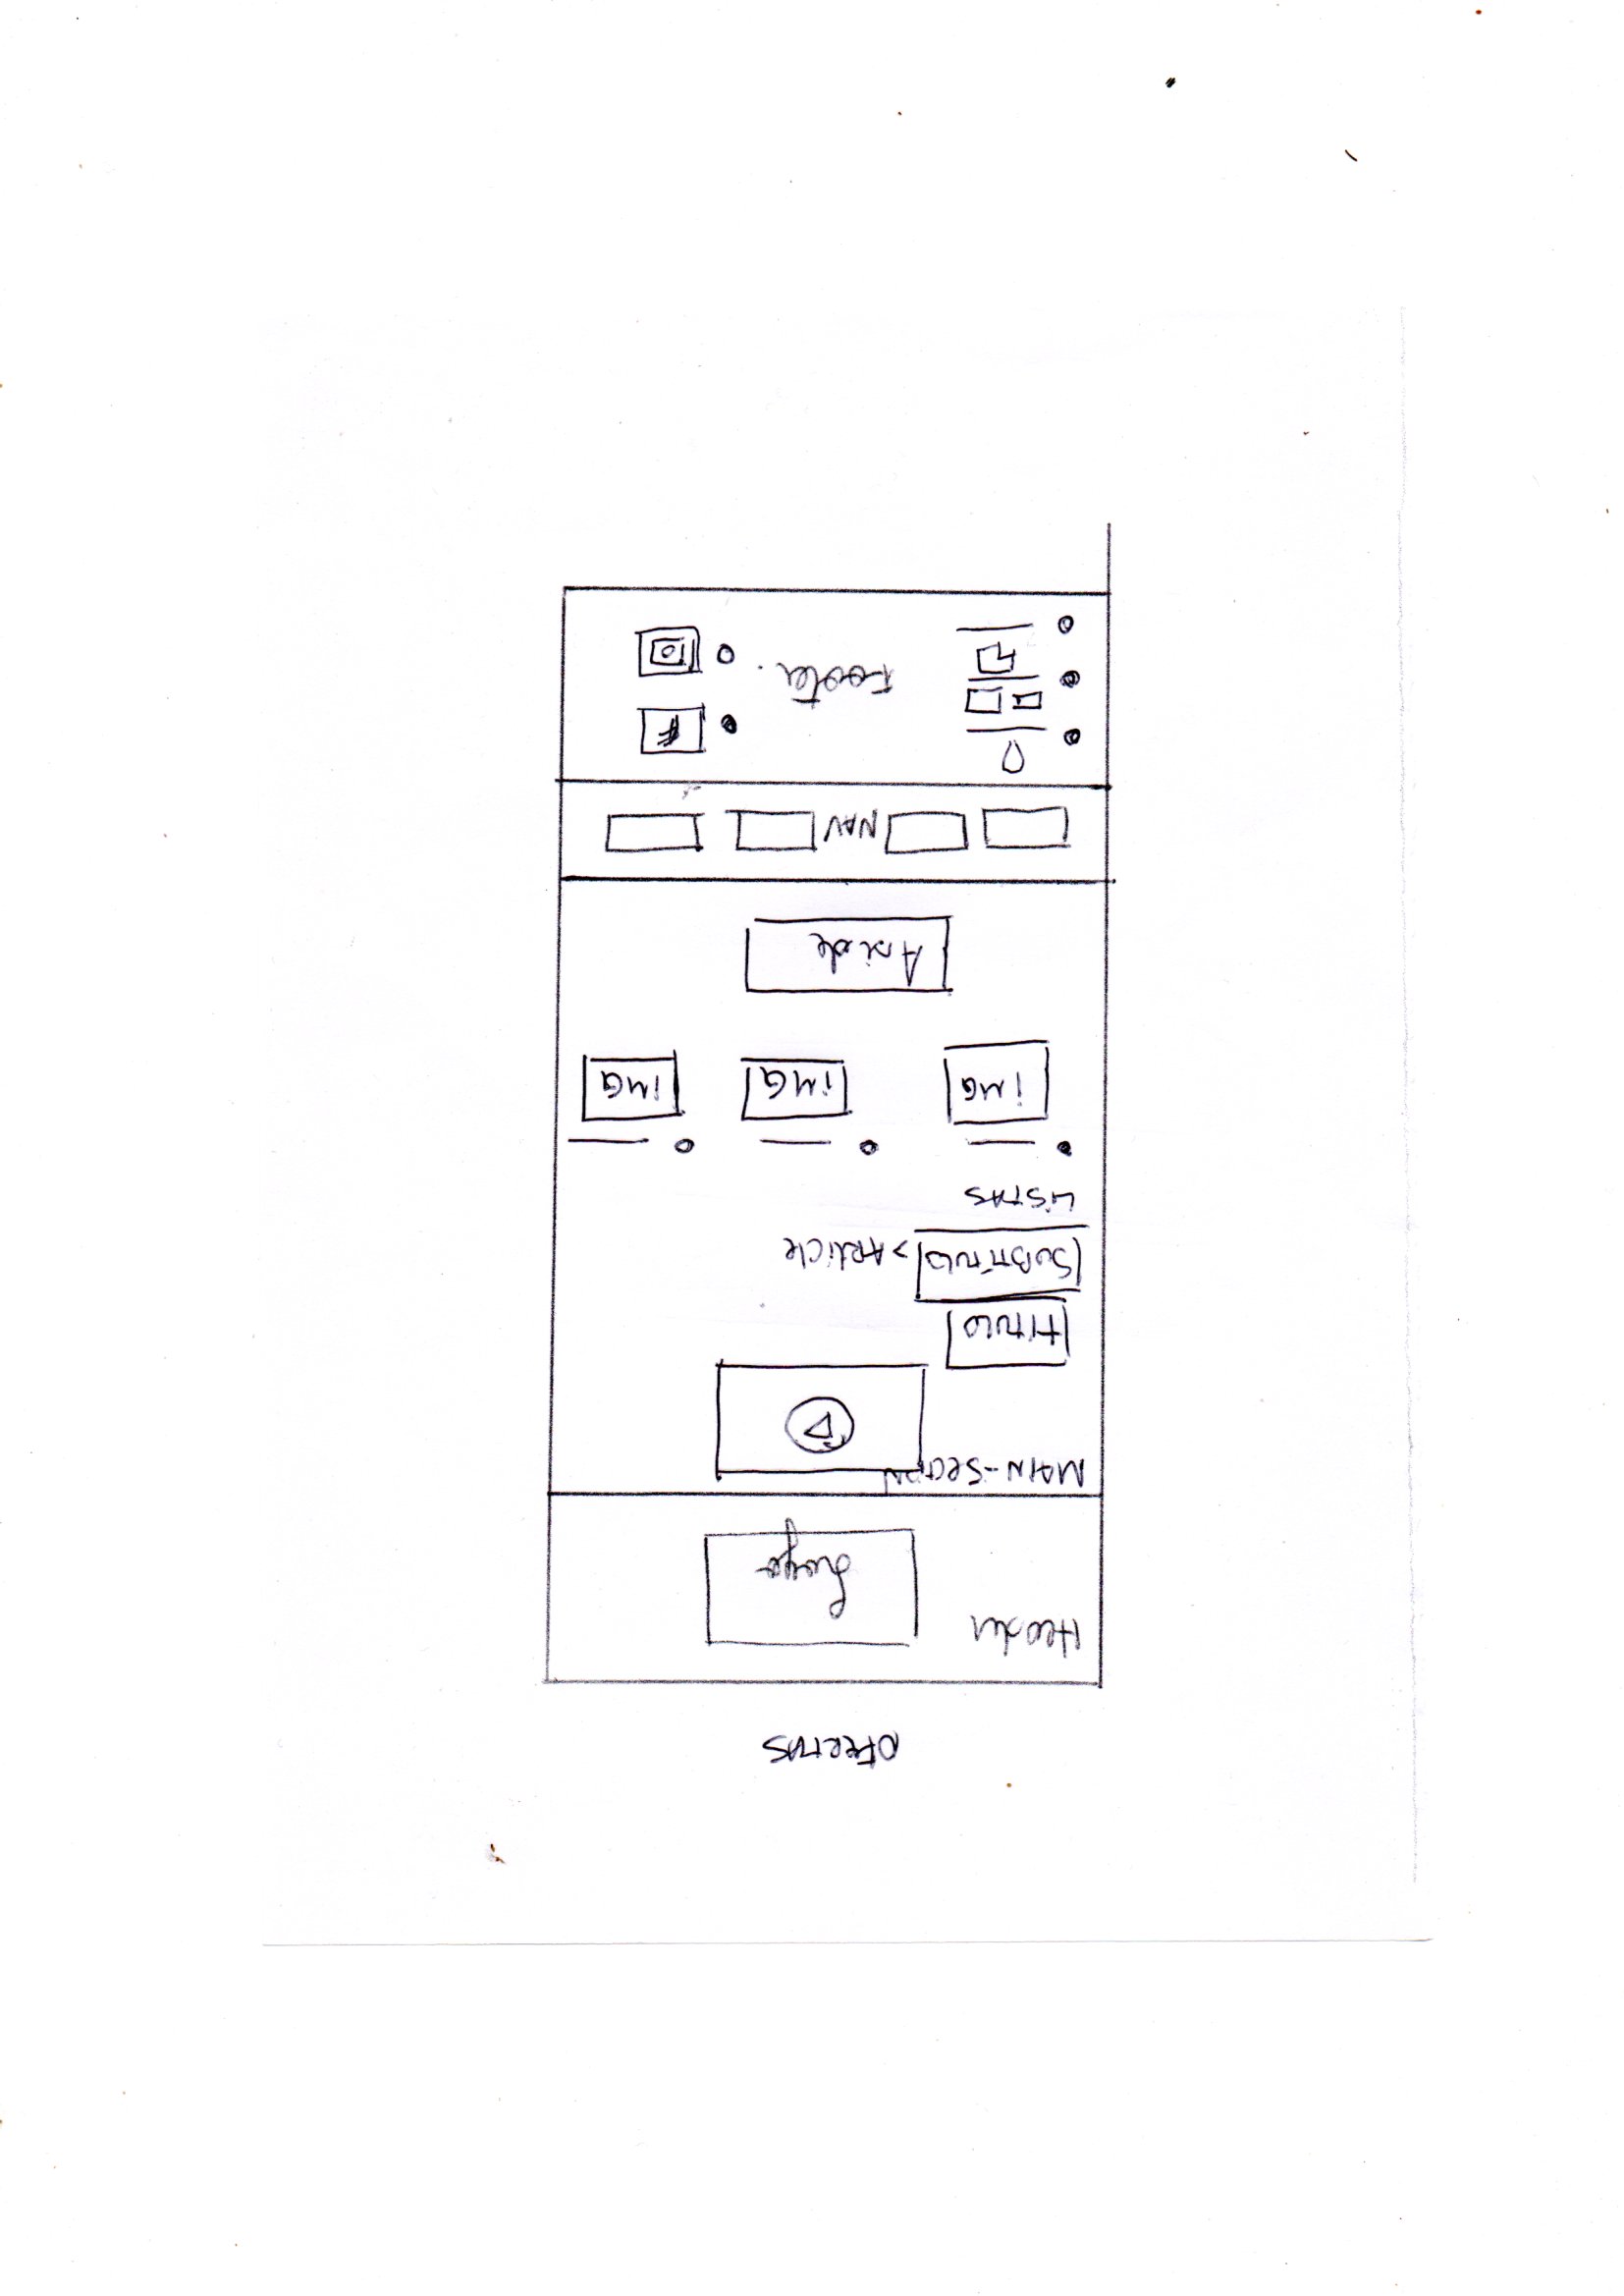 OFERTAS
Header
Logo
MAIN-Section
TITULO
SUBTÍTULO > ARticle
LiSTAS
iMG iMG iMG
Aside
NAV
F
Footer.